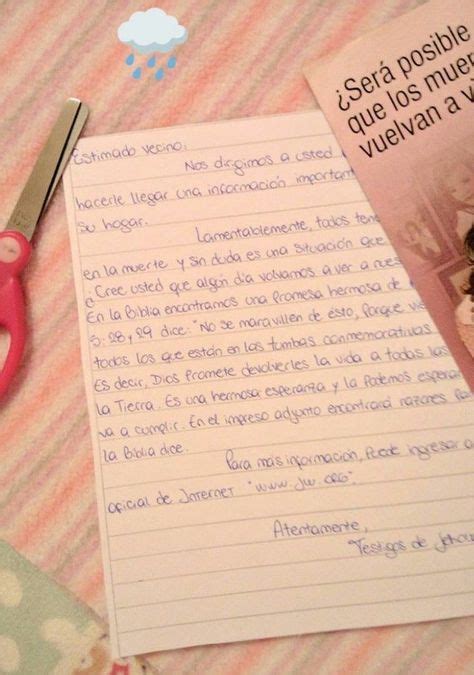 ¿Será posible
que los muer
vuelvan a v
Estimado vecino:
Nos dirigimos a usted
hacerle llegar una información important
su hogar.
Lamentablemente, todos tene
en la muerte y sin duda es una situación que
¿Cree usted que algún día volvamos a ver a nues
En la Biblia encontramos una promesa hermosa de
5:28 y 29 dice: "No se maravillen de ésto, porque vie
todos los que están en las tumbas conmemorativas
Es decir, Dios promete devolverles la vida a todos las
la Tierra. Es una hermosa esperanza y la podemos espera
va a cumplir. En el impreso adjunto encontrará razones pa
la Biblia dice.
Para más información, puede ingresar a
oficial de Internet "www.jw.org".
Atentamente,
Testigos de Jehov